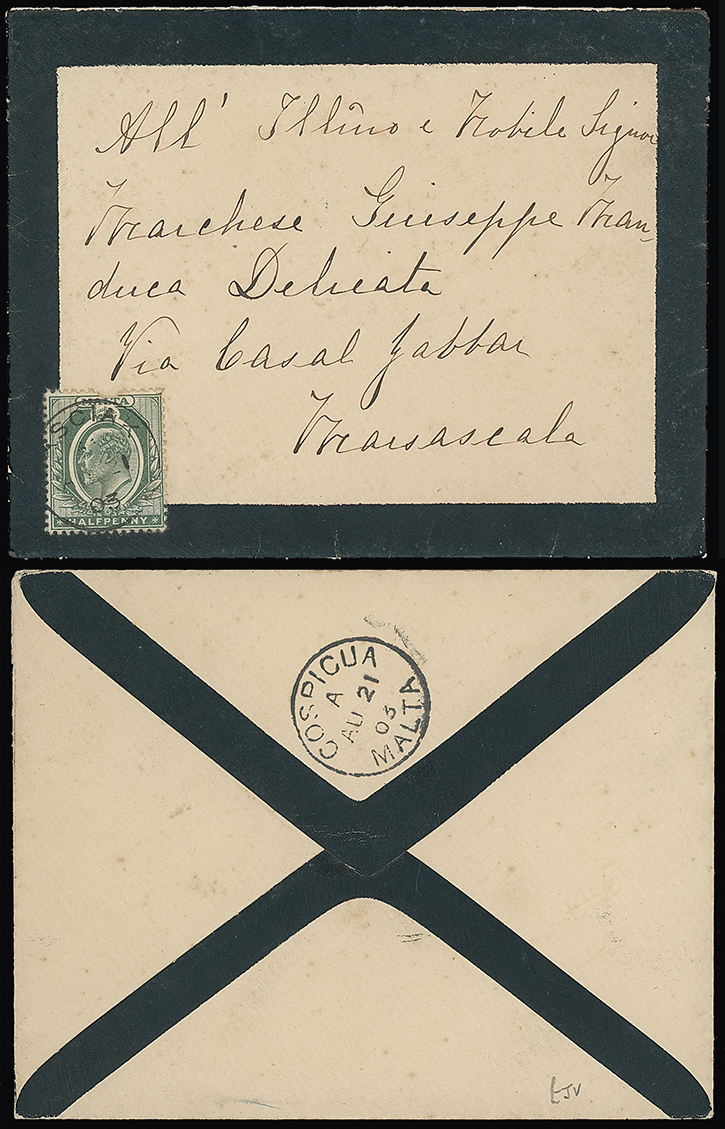 All' Illmo e Nobile Signor
Marchese Giuseppe Man-
duca Delicata
Via Casal Zabbar
Marsascala
MALTA
HALFPENNY
03
COSPICUA
A
AU 21
03
MALTA